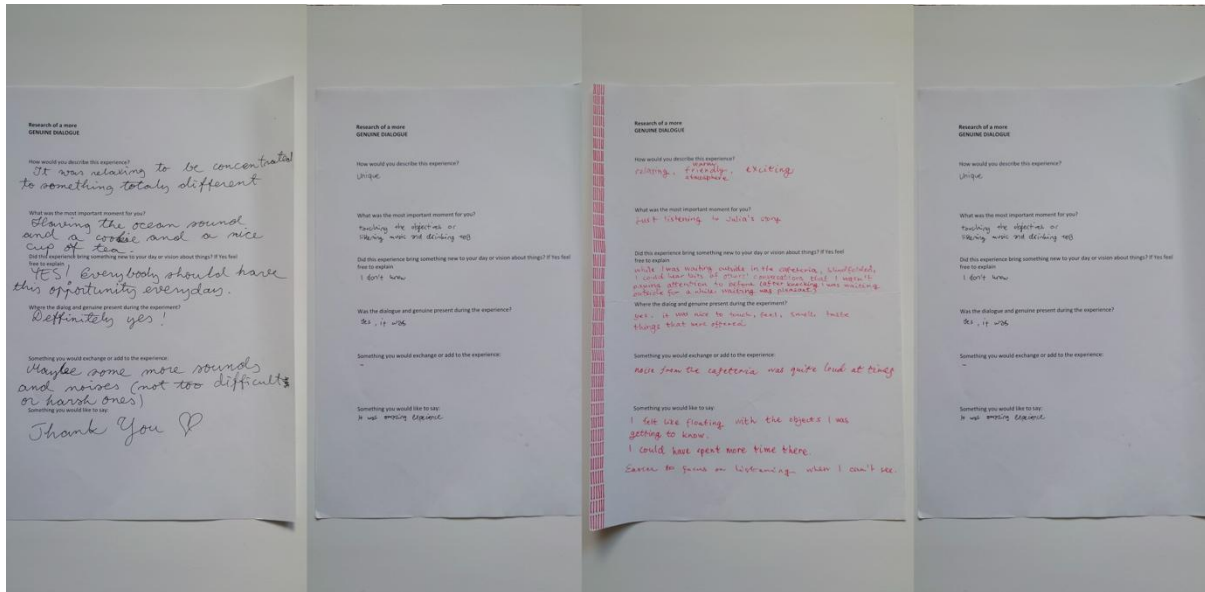 Research of a more
GENUINE DIALOGUE
How would you describe this experience?
It was relaxing to be concentrated
to something totaly different
What was the most important moment for you?
Having the ocean sound
and a cookie and a nice
cup of tea.
Did this experience bring something new to your day or vision about things? If Yes feel
free to explain
YES! Everybody should have
this opportunity everyday.
Where the dialog and genuine present during the experiment?
Deffinitely yes!
Something you would exchange or add to the experience:
Maybe some more sounds
and noises (not too difficult
or harsh ones)
Something you would like to say:
Thank You ♡
Research of a more
GENUINE DIALOGUE
How would you describe this experience?
Unique
What was the most important moment for you?
touching the objectives or
music and drinking
Did this experience bring something new to your day or vision about things? If Yes feel
free to explain
I don't know
Was the dialogue and genuine present during the experiment?
yes, it was
Something you would exchange or add to the experience:
-
Something you would like to say:
It was amazing
Research of a more
GENUINE DIALOGUE
How would you describe this experience?
relaxing, friendly, exciting
atmosphere
What was the most important moment for you?
just listening to Julia's song
Did this experience bring something new to your day or vision about things? If Yes feel
free to explain
While I was waiting outside in the cafeteria, blindfolded,
I could hear bits of that I wasn't
paying attention to before (after I was waiting
outside for a while. Waiting was pleasant)
Where the dialog and genuine present during the experiment?
yes, it was nice to touch, feel, smell, taste
things that were offered.
Something you would exchange or add to the experience:
noise from the cafeteria was quite loud at times
Something you would like to say:
I felt like floating with the objects I was
getting to know.
I could have spent more time there.
Easier to focus on when I can't see.
Research of a more
GENUINE DIALOGUE
How would you describe this experience?
Unique
What was the most important moment for you?
touching the objectives or
music and drinking
Did this experience bring something new to your day or vision about things? If Yes feel
free to explain
I don't know
Was the dialogue and genuine present during the experiment?
yes, it was
Something you would exchange or add to the experience:
-
Something you would like to say:
It was amazing